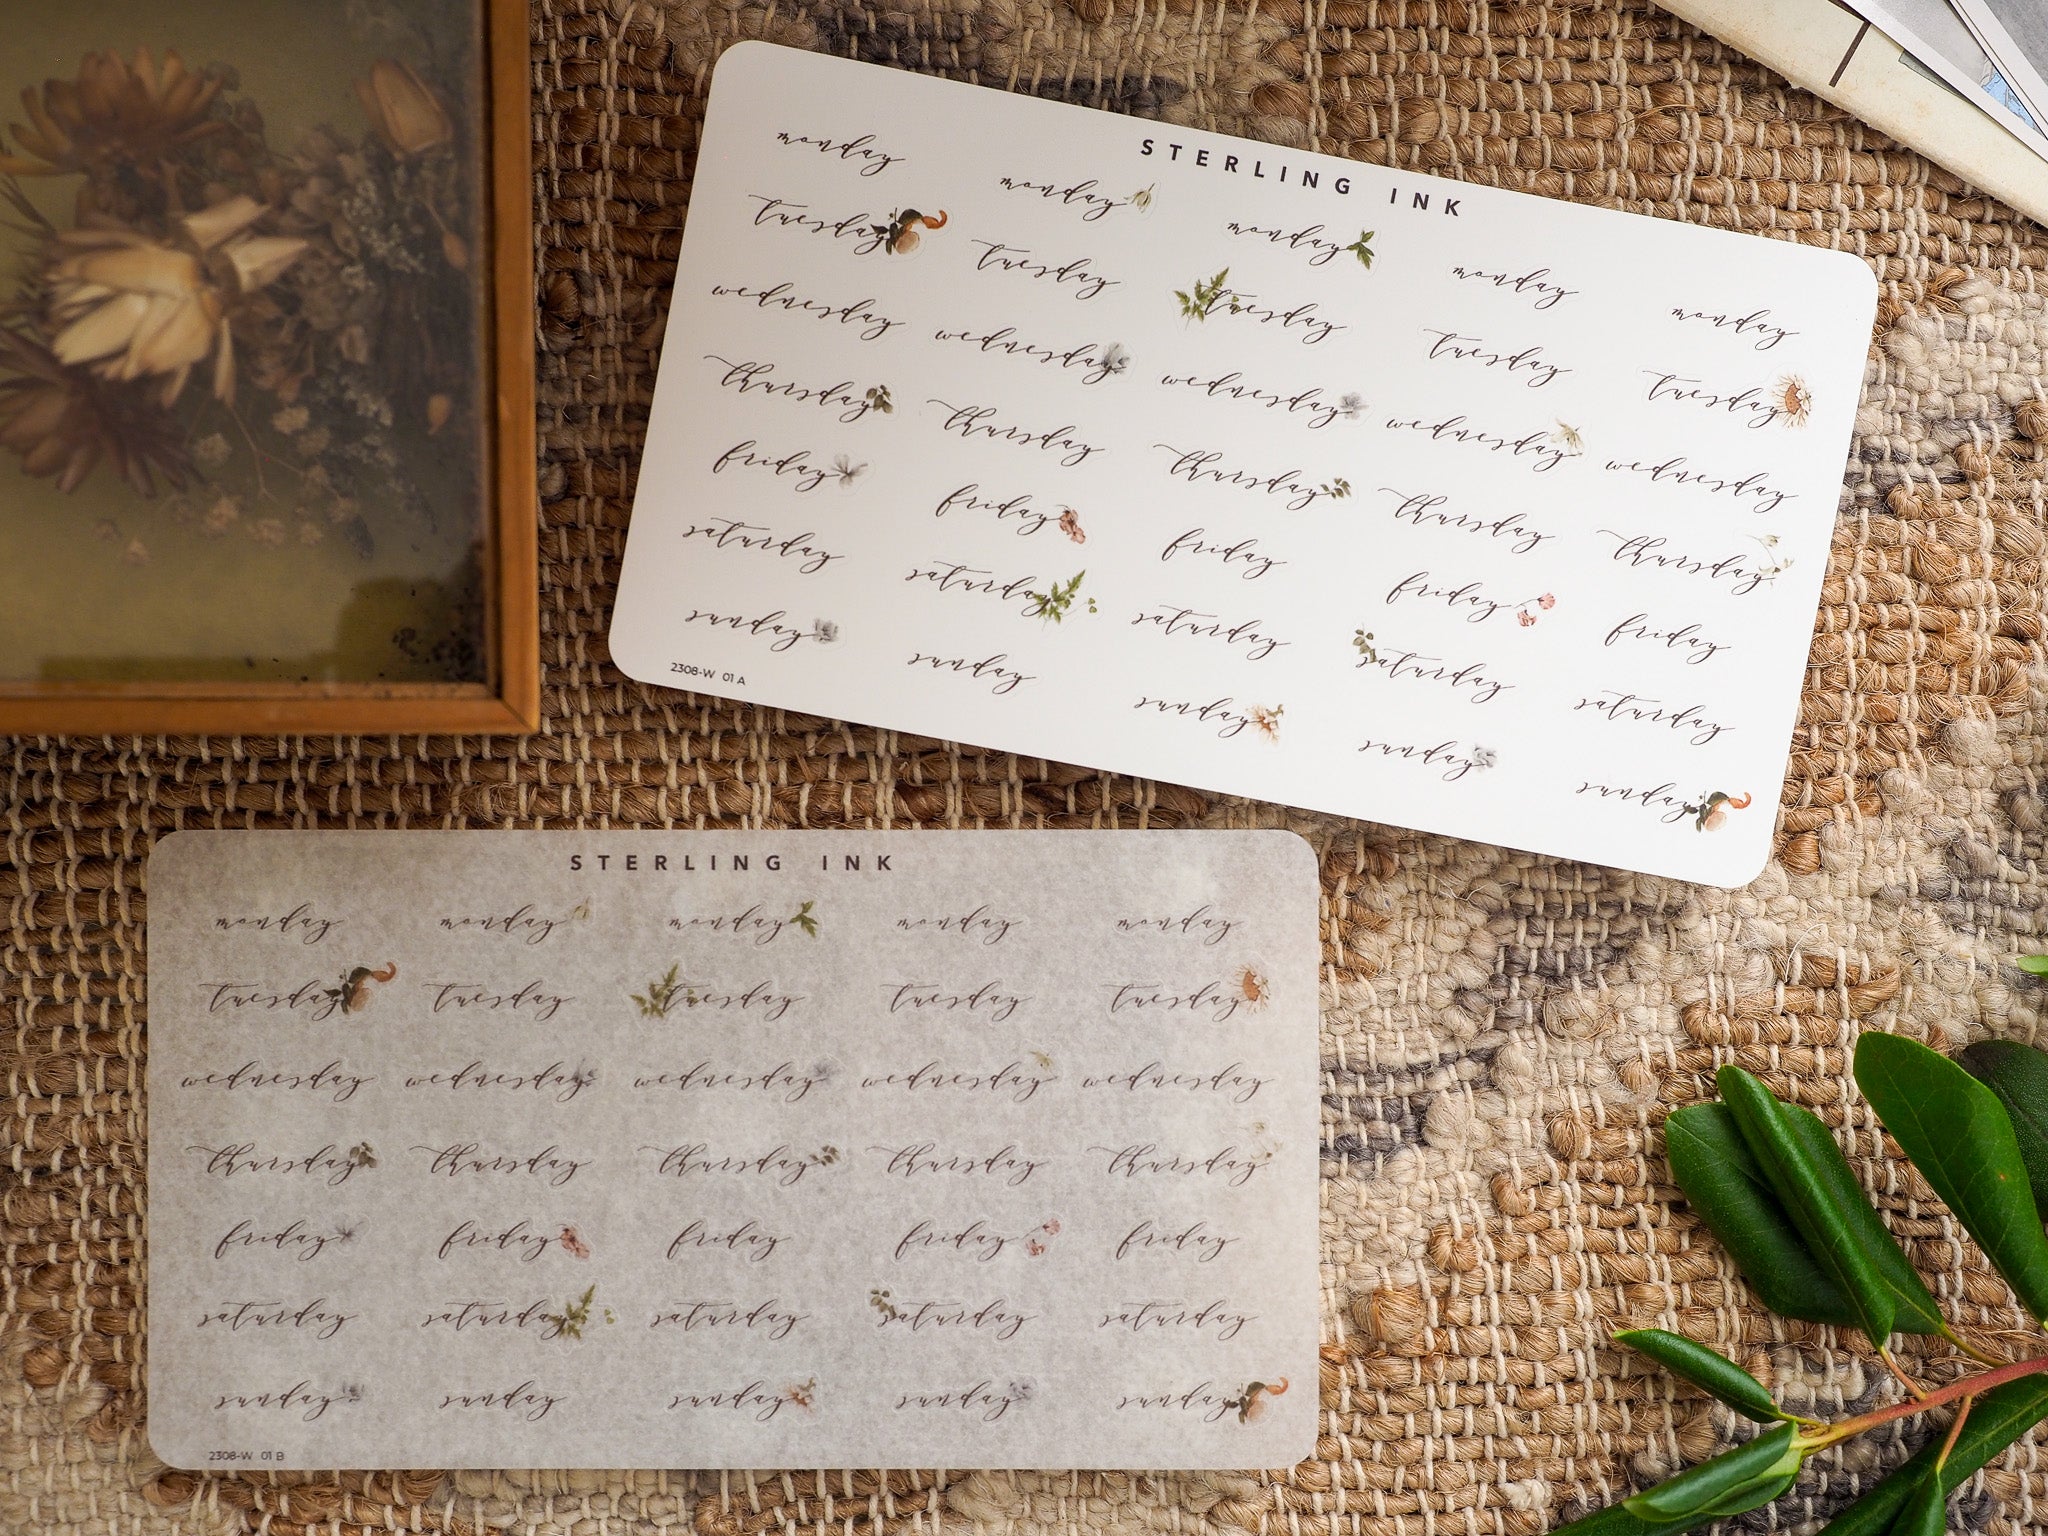 STERLING INK
monday monday monday monday monday
tuesday tuesday tuesday tuesday tuesday
wednesday wednesday wednesday wednesday wednesday
thursday thursday thursday thursday thursday
friday friday friday friday friday
saturday saturday saturday saturday saturday
sunday sunday sunday sunday sunday
2308-W 01 A
STERLING INK
monday monday monday monday monday
tuesday tuesday tuesday tuesday tuesday
wednesday wednesday wednesday wednesday wednesday
thursday thursday thursday thursday thursday
friday friday friday friday friday
saturday saturday saturday saturday saturday
sunday sunday sunday sunday sunday
2308-W 01 B